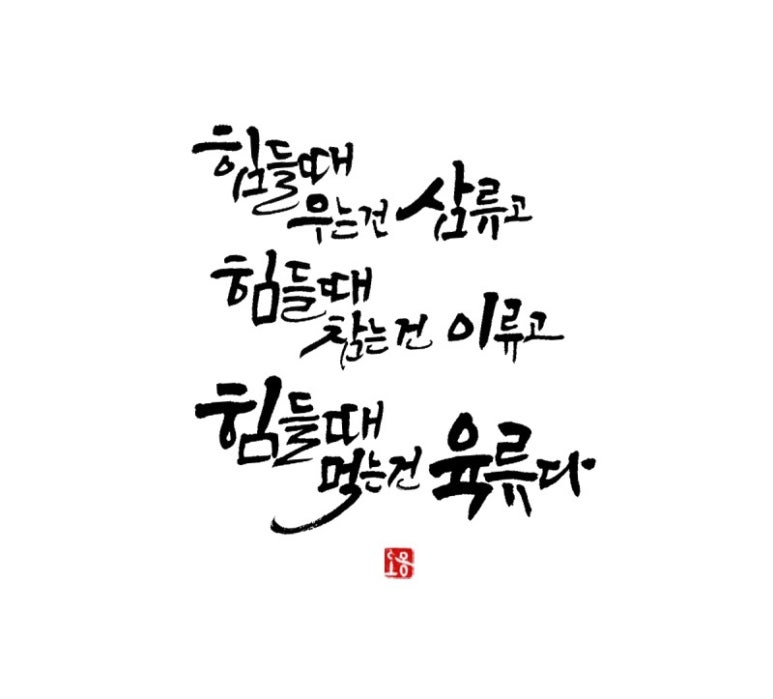 힘들때
우는건 삼류고
힘들때
참는건 이류고
힘들때
먹는건 육류다.